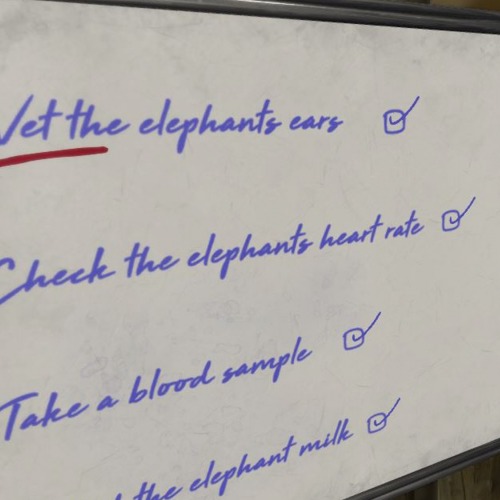 the elephants ears
Check the elephants heart rate
Take a blood sample
the elephant milk